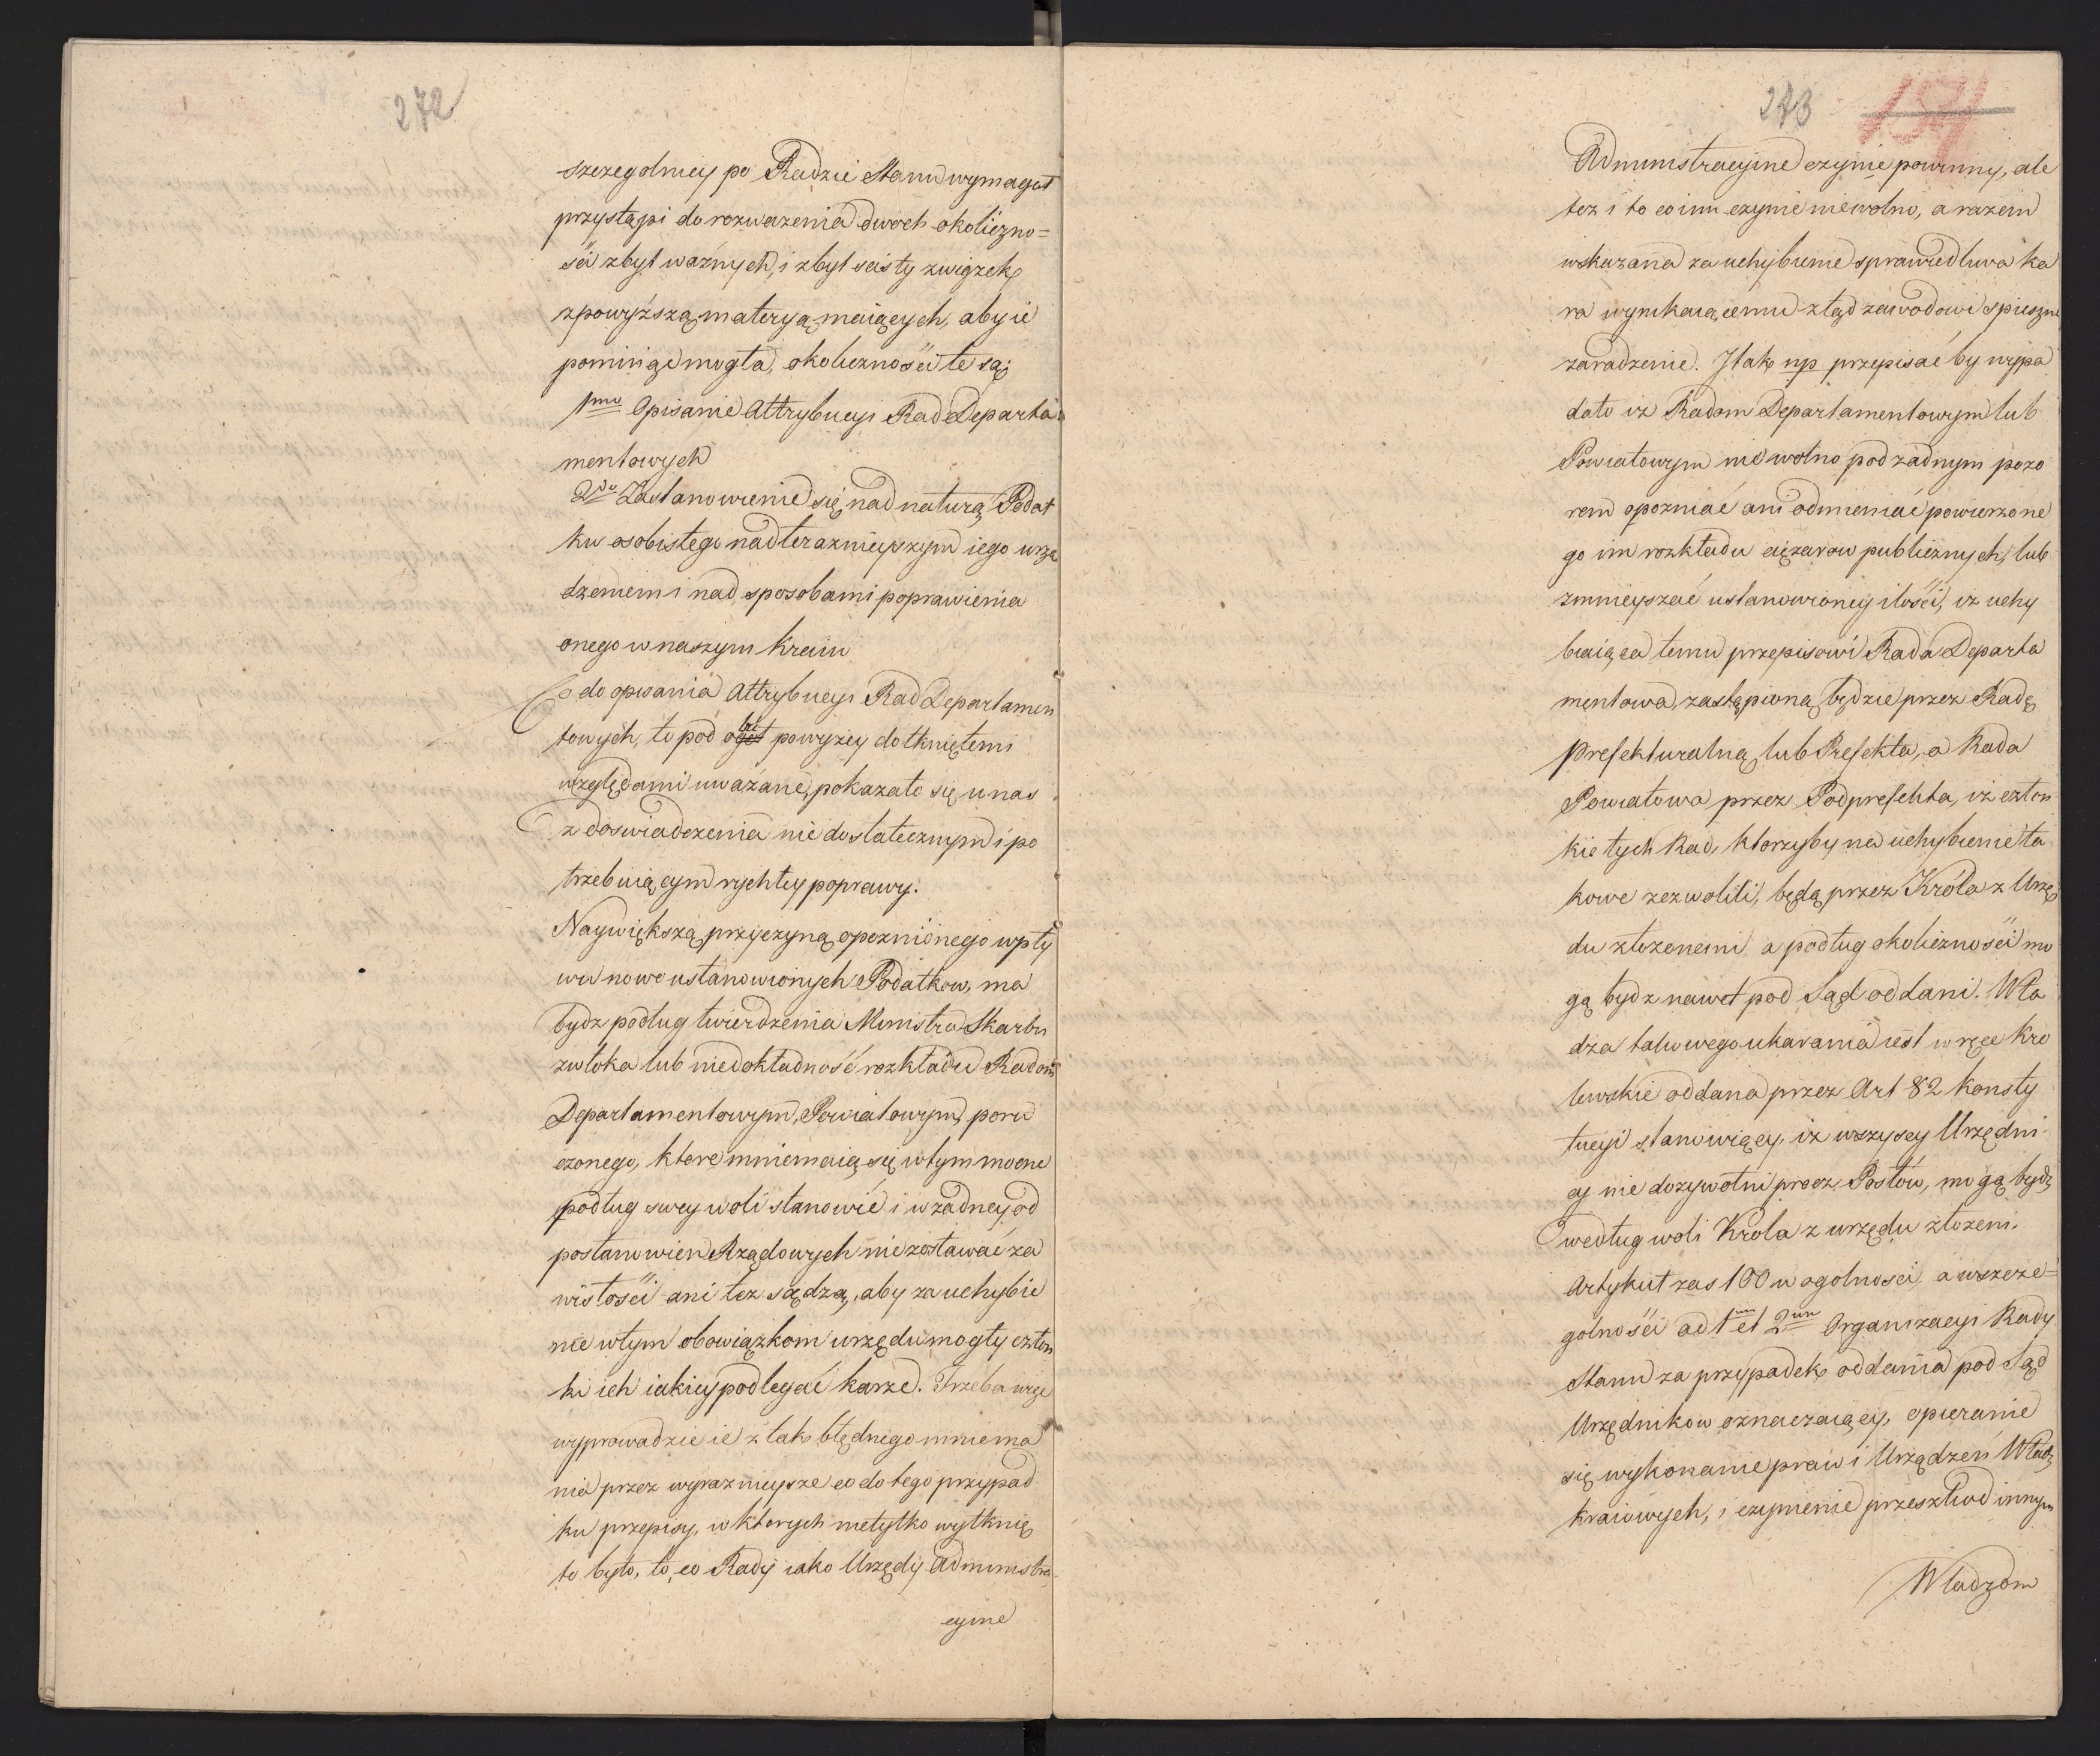 272
szczegolniey po Radzie Stanu wymagał
przystąpi do rozwazenia dwoch okoliczno=
sci zbyt waznych, i zbyt scisły związek
zpowyższą materyą maiących, aby ie
pominąc mogła, okolicznosci te są;
1mo Opisanie Attrybucyi Rad Departa
mentowych
2do Zastanowienie się nad naturą Podat
ku osobistego nad teraznieyszym iego urzą
dzeniem i nad sposobami poprawienia
onego w naszym Kraiu
Co do opisania Attrybucyi Rad Departamen
towych, to pod powyzey dotkniętemi
względami uważane, pokazało się u nas
z doswiadczenia nie dostatecznym i po
trzebuiącym rychłey poprawy.
Naywiększą przyczyną opoznionego wpły
wu nowo ustanowionych Podatkow, ma
bydz podług twierdzenia Ministra Skarbu
zwłoka lub niedokładność rozkładu Radom
Departamentowym, Powiatowym, poru
czonego, ktore mniemaią się w tym mocne
podług swey woli stanowić i w zadney od
postanowien Rządowych nie zostawać za
wisłości ani tez sądzą, aby za uchybie
nie w tym obowiązkom urzędu mogły człon
ki ich iakiey podlegać karze. Trzeba więc
wyprowadzic ie z tak błędnego mniema
nia przez wyraznieysze co do tego przypad
ku przepisy, w ktorych nietylko wytknię
to było, to, co Rady iako Urzędy Administra
cyine
273
151
Administracyine czynic powinny, ale
tez i to co im czynic niewolno, a razem
wskazana za uchybienie sprawiedliwa ka
ra wynikaiącemu ztąd zawodowi spieszne
zaradzenie. I tak np przepisać by wypa
dało iz Radom Departamentowym lub
Powiatowym nie wolno pod zadnym pozo
rem opozniać ani odmieniać powierzone
go im rozkładu ciężarow publicznych, lub
zmnieyszać ustanowioney ilości, iz uchy
biaiąca temu przepisowi Rada Departa
mentowa, zastąpiona będzie przez Radę
Prefekturalną lub Prefekta, a Rada
Powiatowa przez Podprefekta, iz człon
kie tych Rad, ktorzyby na uchybienie ta
kowe zezwolili, będą przez Króla z Urzę
du złozenemi a podług okoliczności mo
gą bydz nawet pod Sąd oddani. Wła
dza takowego ukarania iest w ręce Kro
lewskie oddana przez Art 82 Konsty
tucyi stanowiący, iz wszyscy Urzędni
cy nie dozywotni procz Posłów, mogą bydz
według woli Krola z urzędu złozeni.
Artykuł zas 100 w ogolności, a wszcze=
golności ad 1um et 2um Organizacyi Rady
Stanu za przypadek oddania pod Sąd
Urzędnikow oznaczaiący, opieranie
się wykonanie praw i Urządzeń Władz
kraiowych, i czynienie przeszkod innym
Władzom